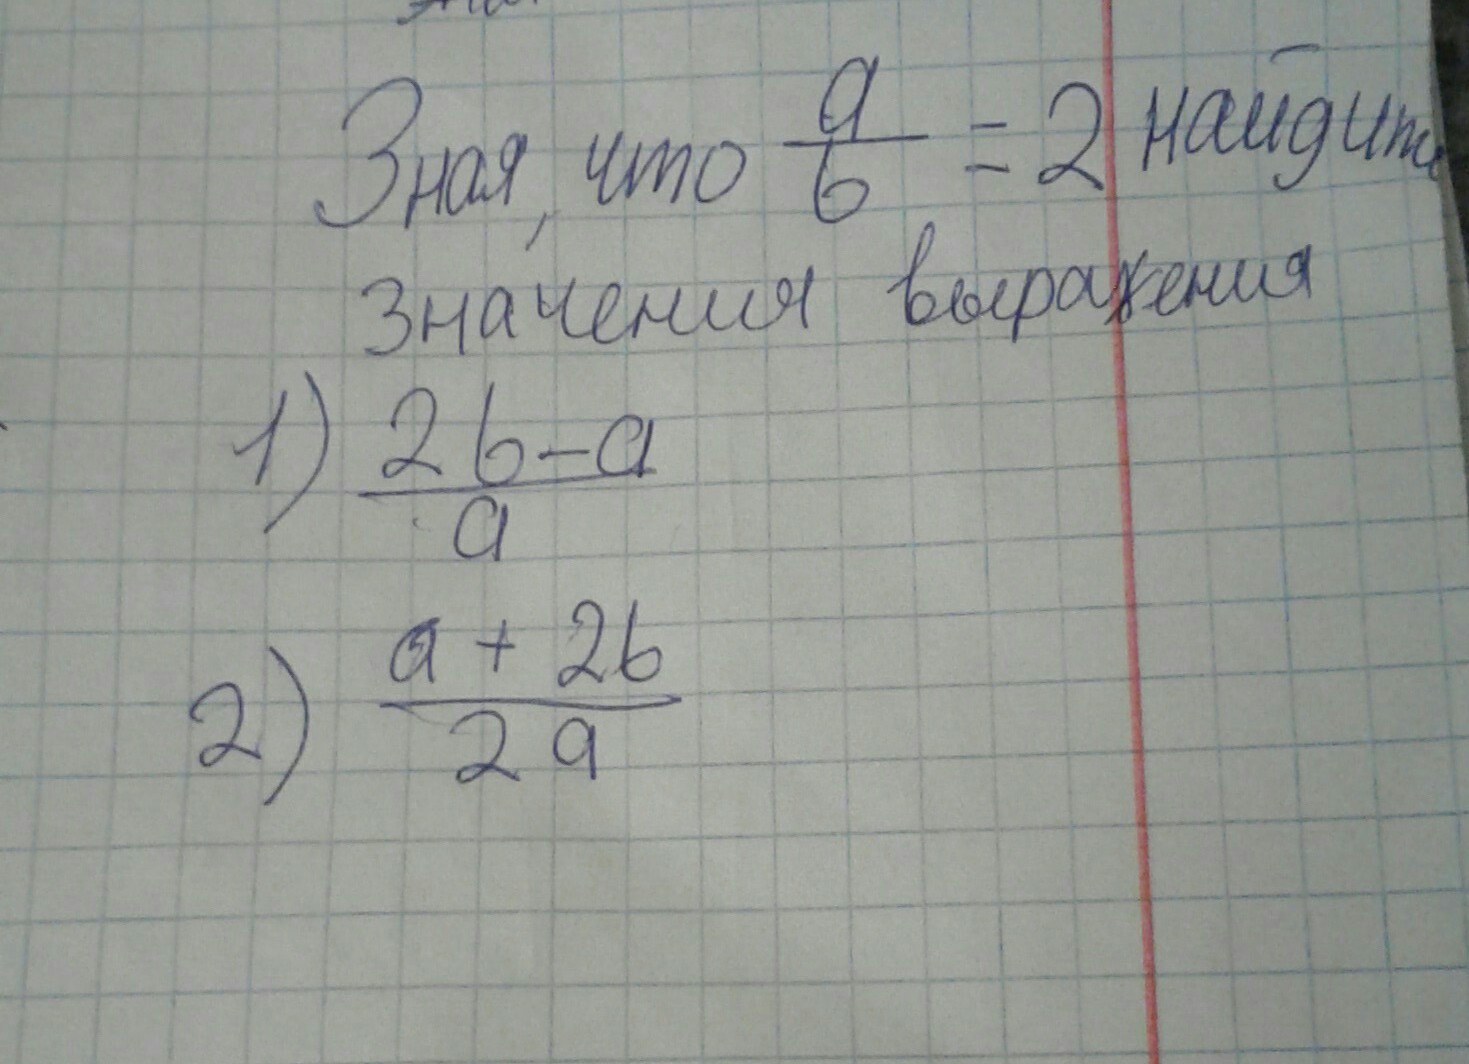 Зная, что a/b = 2 найдите
значения выражения
1) (2b-a)/a
2) (a + 2b)/(2a)